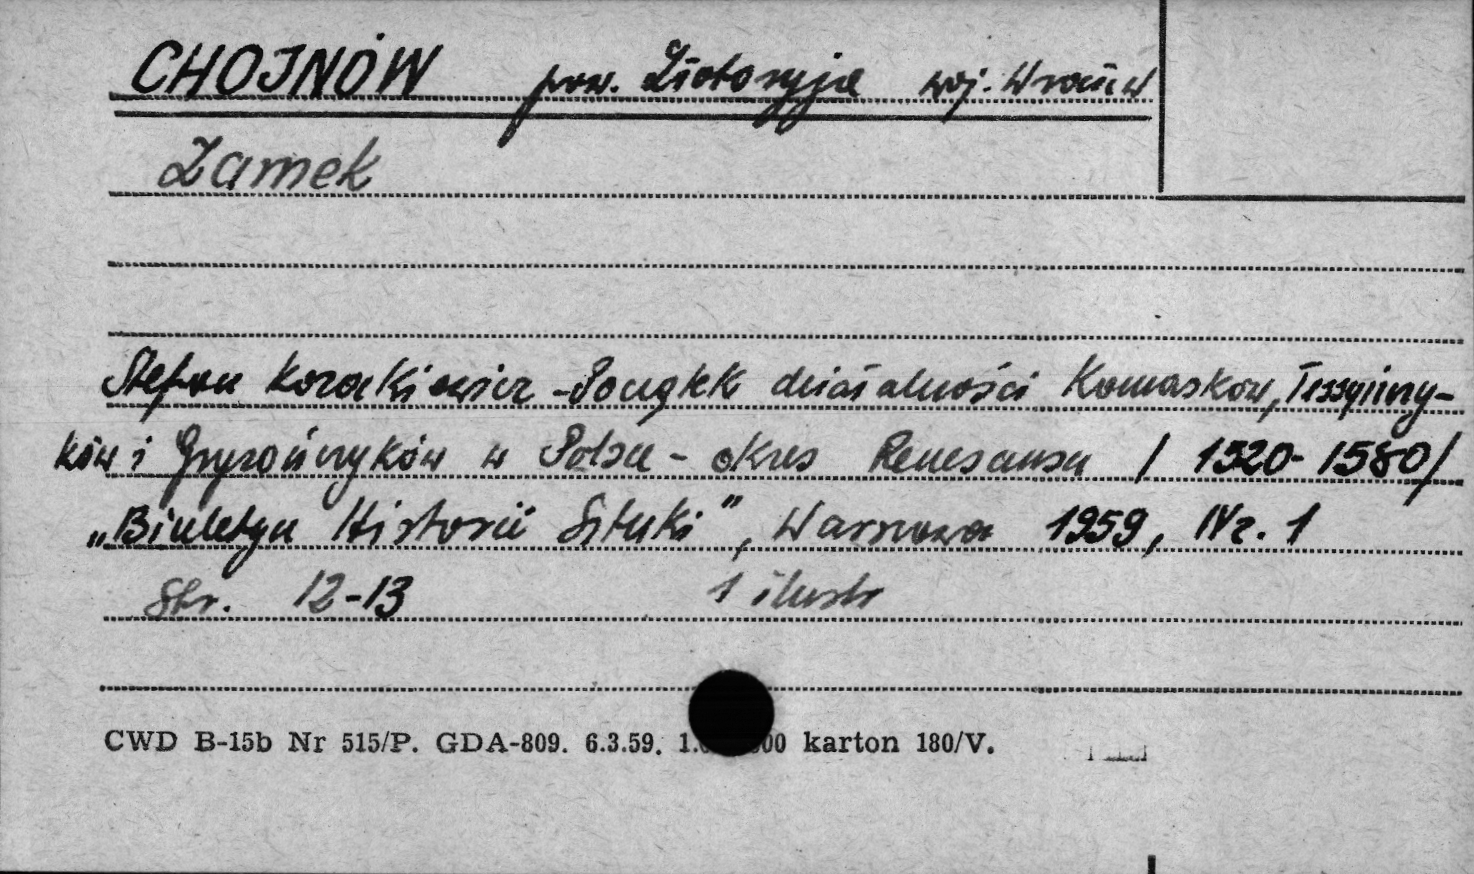 CHOJNÓW pow. Złotoryja woj. Wrocław
Zamek
Stefan Kozakiewicz - Początek działalności Komasków, Tessyńczy-
ków i Gryzończyków w Polsce - okres Renesansu / 1520-1580/
„Biuletyn Historii Sztuki", Warszawa 1959, Nr. 1
Str. 12-13 1 ilustr
CWD B-15b Nr 515/P. GDA-809. 6.3.59. karton 180/V.